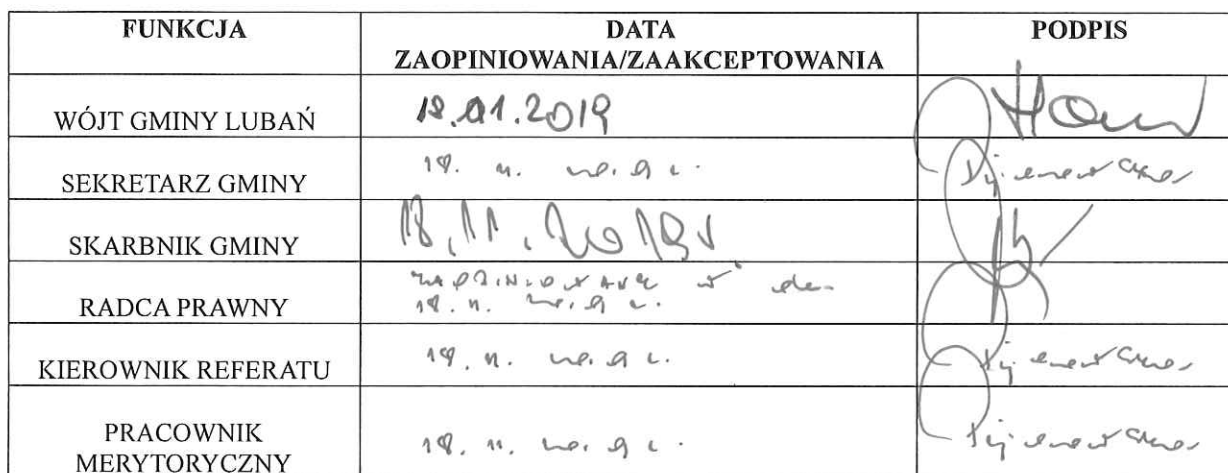 FUNKCJA
DATA
ZAOPINIOWANIA/ZAAKCEPTOWANIA
PODPIS
WÓJT GMINY LUBAŃ
18.11.2019
SEKRETARZ GMINY
18. 11. 2019 r.
SKARBNIK GMINY
18.11.2019r
RADCA PRAWNY
18. 11. 2019 r.
KIEROWNIK REFERATU
18. 11. 2019 r.
PRACOWNIK
MERYTORYCZNY
18. 11. 2019 r.